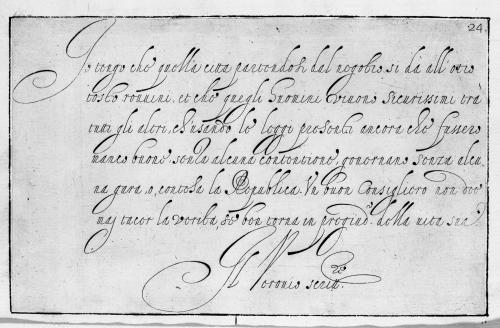 24.
Io tengo che quella citta partendosi dal negotio, si da all'otio
tosto rouuini, et che quegli huomini viuono sicurissimi trà
tutti gli altri, ch'usando le leggi presenti ancora che fussero
manco buone senza alcuna contentione, gouernano senza alcu
na gara, o, contesa la Republica. Vn buon Consigliero non dee
maj tacer la verita, se ben torna in pregiud.º della uita sua
Il
cronio scriu.